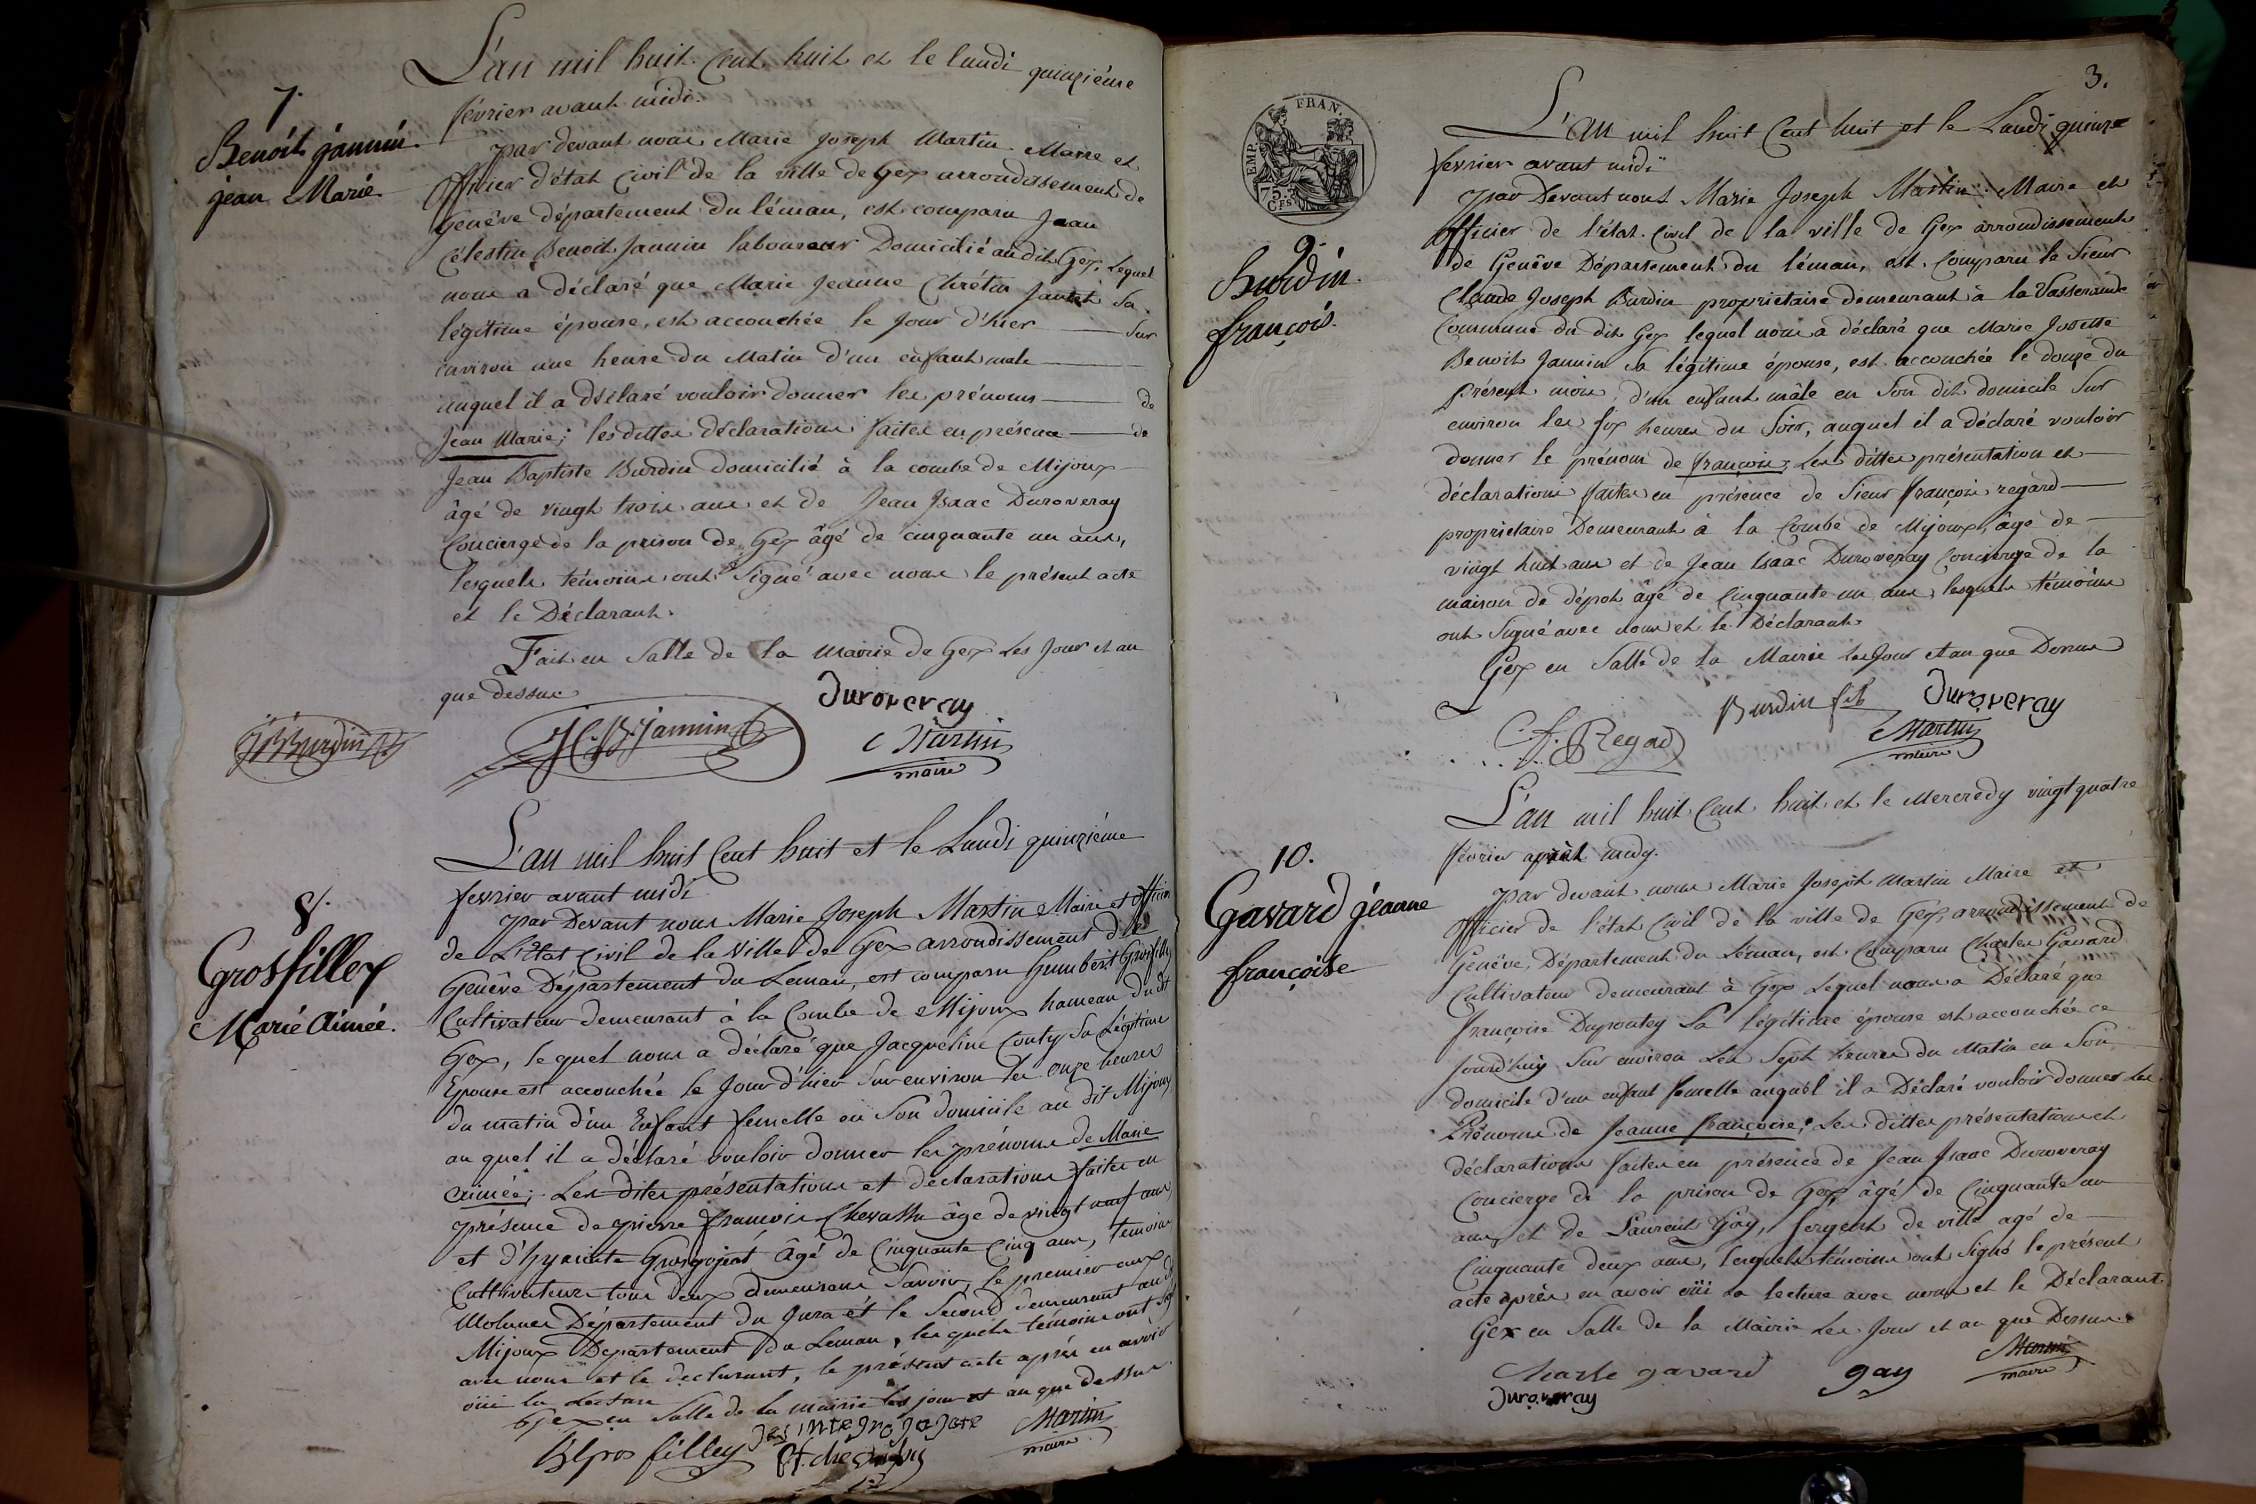 7.
Benoit jannin
jean Marie
L'an mil huit Cent huit et le lundi quinzième
février avant midi.
par devant nous Marie Joseph Martin Maire et
Officier d'état Civil de la ville de Gex arrondissement de
Genêve département du léman, est comparu Jean
Célestin Benoit Jannin laboureur Domicilié au dit Gex, Lequel
nous a déclaré que Marie Jeanne Chrétin sa
légitime épouse, est accouchée le Jour d'hier — sur
environ une heure du Matin d'un enfant male —
auquel il a déclaré vouloir donner les prénoms — de
Jean Marie; les dittes déclarations faites en présence — de
Jean Baptiste Burdin domicilié à la combe de Mijoux
âgé de vingt trois ans et de Jean Isaac Duroveray
Concierge de la prison de Gex âgé de cinquante un ans,
lesquels témoins ont Signé avec nous le présent acte
et le Déclarant.
Fait en Salle de la Mairie de Gex Les Jour et an
que dessus
JB Burdin
J.C.B. Jannin
Duroveray
Martin
maire
8.
Grosfillex
Marie Aimée.
L'an mil huit Cent huit et le Lundi quinzième
fevrier avant midi
par Devant nous Marie Joseph Martin Maire et officier
de L'Etat Civil de la Ville de Gex arrondissement de
Genêve Département du Leman, est comparu Humbert Grosfillex
Cultivateur demeurant à la Combe de Mijoux hameau du dit
Gex, le quel nous a déclaré que Jacqueline Conty Sa Légitime
Epouse est accouchée le Jour d'hier Sur environ les onze heures
du matin d'un Enfant femelle en Son domicile au dit Mijoux
au quel il a déclaré vouloir donner les prénoms de Marie
aimée; Les dites présentations et déclarations faites en
présence de pierre françois Chevassu âge de vingt neuf ans
et d'hyacinte Grosgojeat âgé de Cinquante Cinq ans, temoins
Cultivateurs tous deux demeurans Savoir, le premier aux
Molunes Département du Jura et le Second demeurant au dit
Mijoux Departement du Leman, les quels témoins ont
avec nous et le declarant, le présent acte après en avoir
oüi la Lecture
Gex en Salle de la Mairie les jour et an que dessus.
grosfilley
Martin
maire
3.
EMP. FRAN.
75 CES
9.
Burdin
françois.
L'an mil huit Cent huit et le Lundi quinze
fevrier avant midi
par Devant nous Marie Joseph Martin Maire et
Officier de l'état Civil de la ville de Gex arrondissement
de Genêve Département du léman, est Comparu le Sieur
Claude Joseph Burdin proprietaire demeurant à la Vasserande
Commune du dit Gex lequel nous a déclaré que Marie Josette
Benoit Jannin sa légitime épouse, est accouchée le douze du
présent mois, d'un enfant mâle en Son dit domicile Sur
environ les six heures du Soir, auquel il a déclaré vouloir
donner le prénom de françois; Les dittes présentation et
déclarations faites en présence de Sieur françois regard
proprietaire Demeurant à la Combe de Mijoux, âgé de
vingt huit ans et de Jean Isaac Duroveray Concierge de la
maison de dépot âgé de Cinquante un ans, lesquels témoins
ont Signé avec nous et le Déclarant
Gex en Salle de la Mairie les Jour et an que Dessus
Burdin fils
Duroveray
Regad
Martin
maire
10.
Gavard jéanne
françoise
L'an mil huit Cent huit et le Mercredy vingt quatre
février après midy.
par devant nous Marie Joseph Martin Maire et
Officier de l'état Civil de la ville de Gex, arrondissement de
Genêve, Département du Leman, est Comparu Charles Gavard
Cultivateur demeurant à Gex Lequel nous a Déclaré que
françoise Dupontey Sa légitime épouse est accouchée ce
Jourd'huy Sur environ Les Sept heures du Matin en Son
domicile d'un enfant femelle auquel il a Déclaré vouloir donner Les
Prénoms de Jeanne françoise; Les dittes présentation et
déclarations faites en présence de Jean Isaac Duroveray
Concierge de la prison de Gex, âgé de Cinquante un
ans, et de Laurent Gay, sergent de ville agé de
Cinquante deux ans, lesquels témoins ont Signé le présent
acte après en avoir oüi la lecture avec nous et le Déclarant.
Gex en Salle de la Mairie Les Jour et an que Dessus.
Charle gavard
gay
Martin
maire
Duroveray